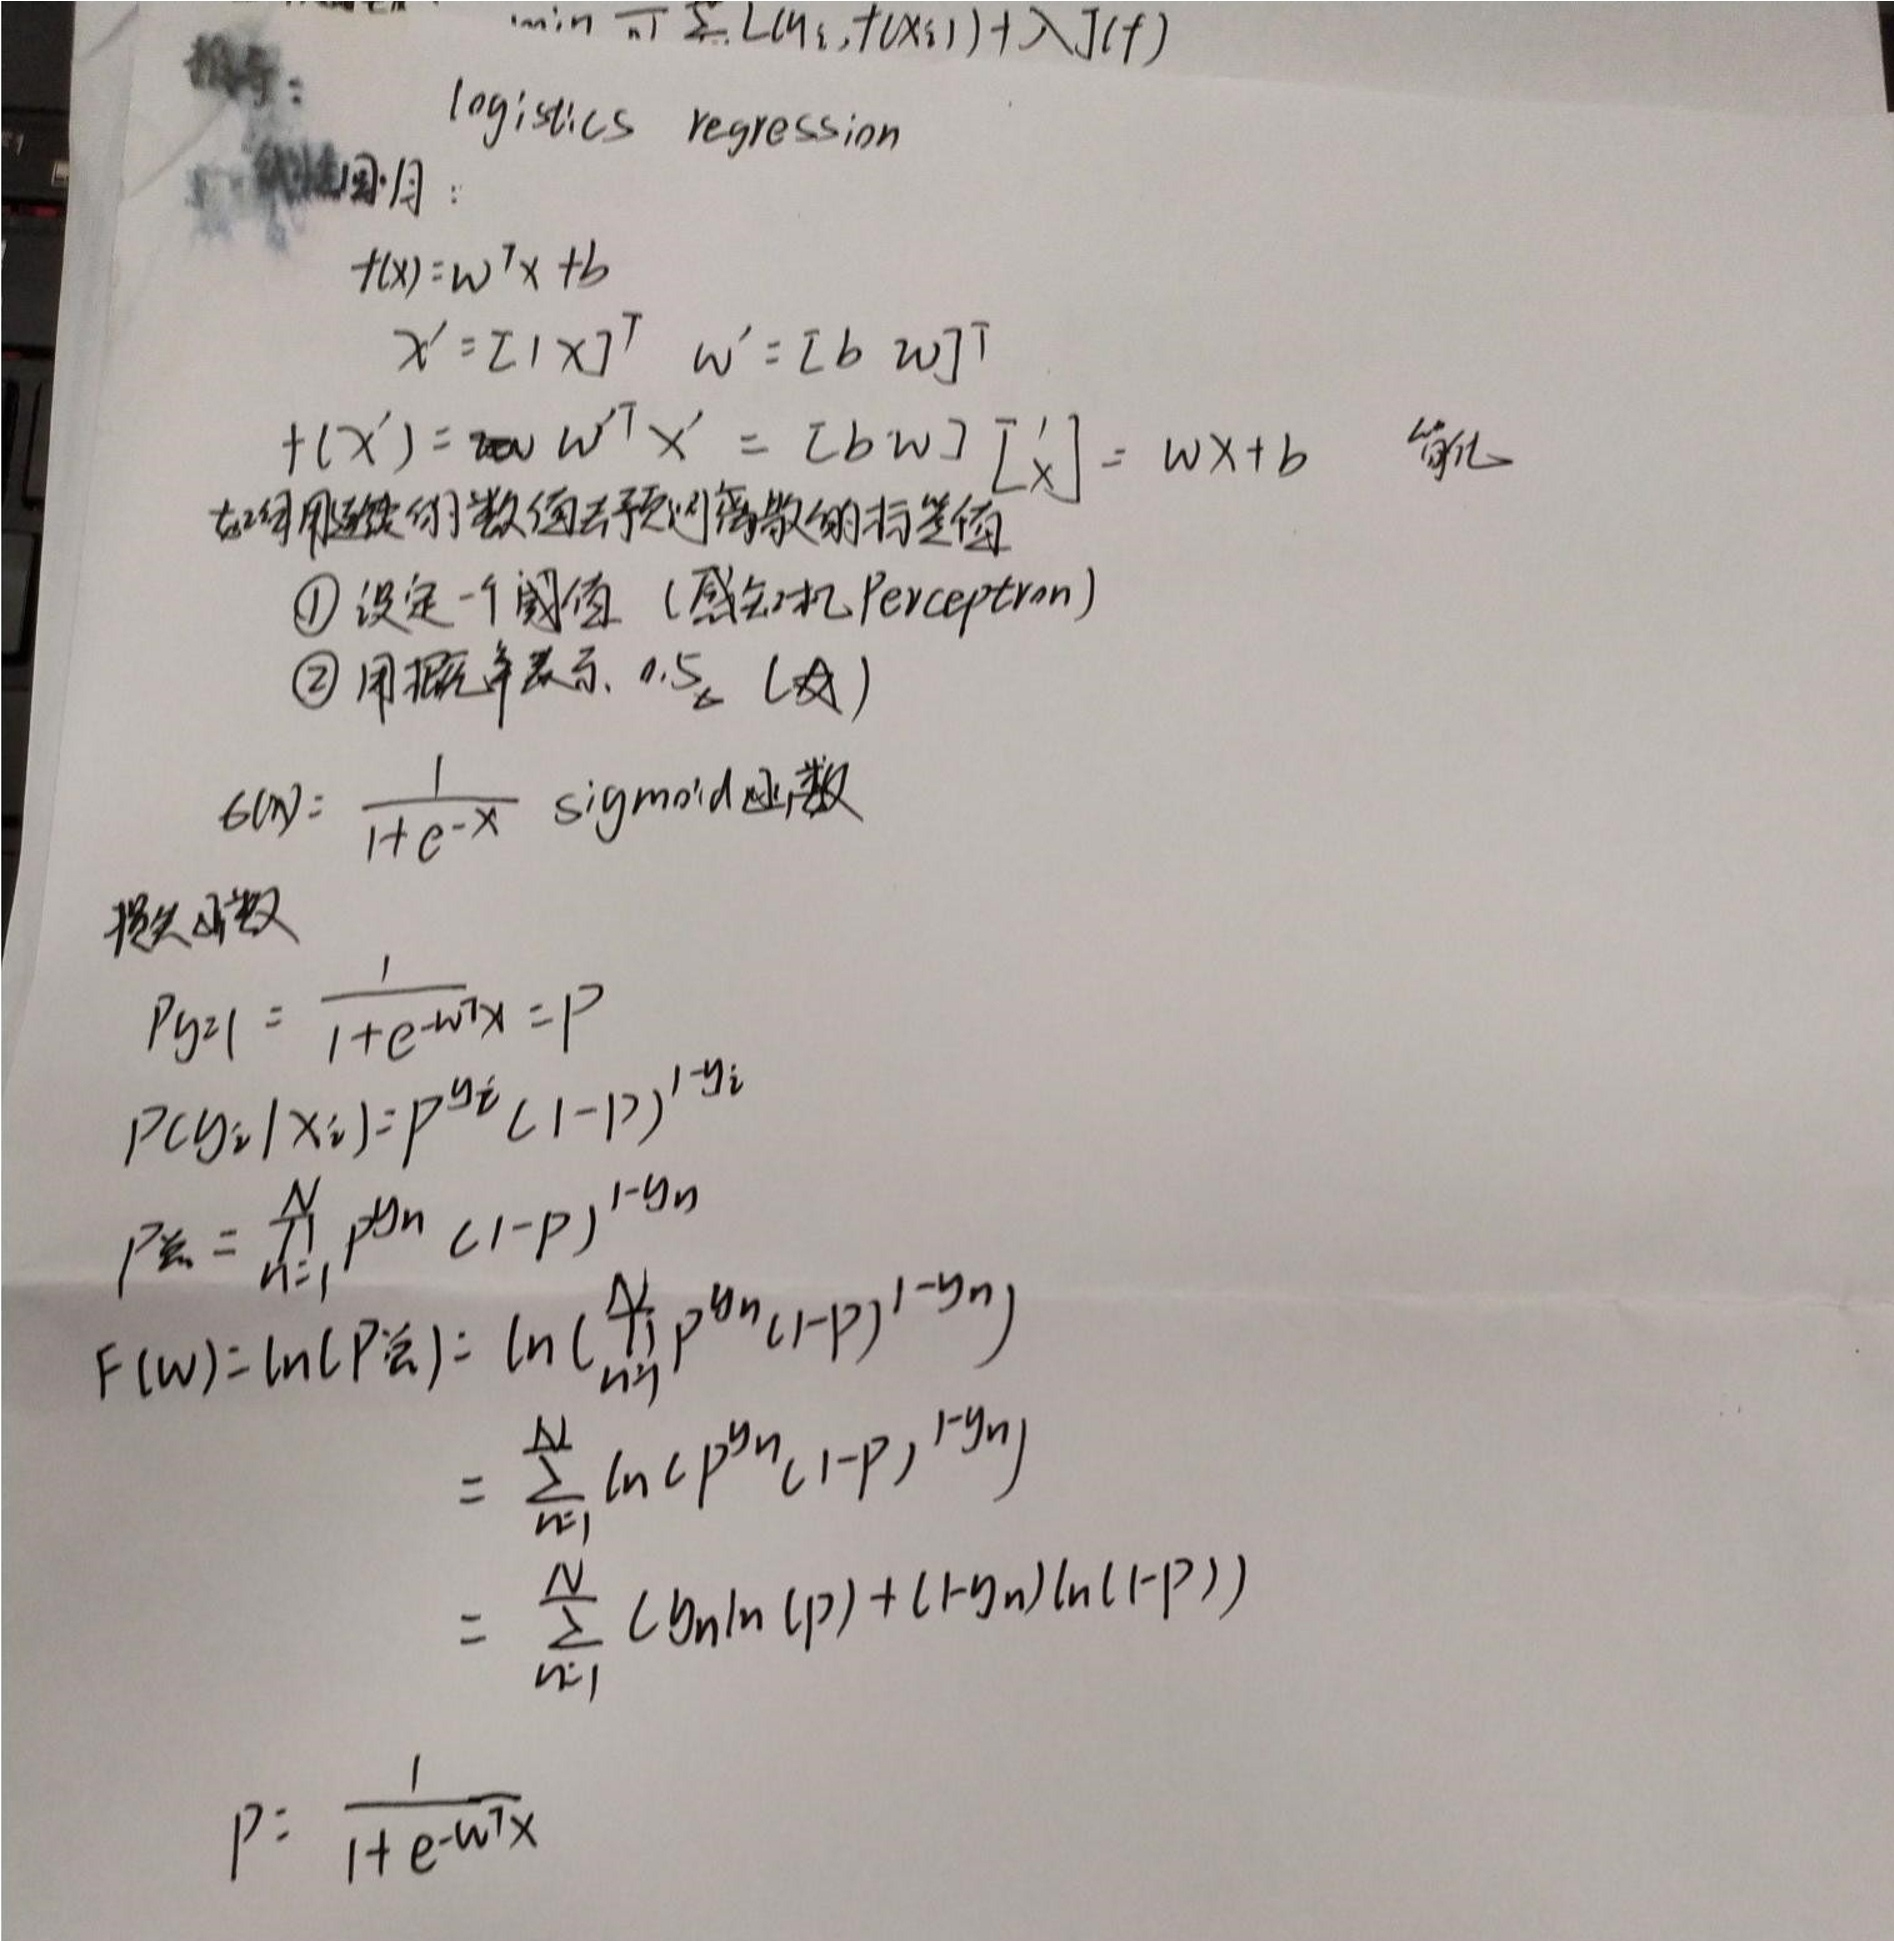 min 1/n Σ L(yᵢ, f(xᵢ)) + λJ(f)
推导:
logistics regression
线性回归:
f(x)=wᵀx+b
x′=[1 x]ᵀ w′=[b w]ᵀ
f(x′)= w′ᵀx′ = [b w] [1 x] = wx+b 简化
如何用连续的数值去预测离散的标签值
① 设定一个阈值 (感知机 Perceptron)
② 用概率表示. 0.5 (☆)
σ(x)= 1/(1+e^-x) sigmoid函数
损失函数
P_{y=1} = 1/(1+e^{-wᵀx}) = P
P(yᵢ|xᵢ)=P^{yᵢ}(1-P)^{1-yᵢ}
P总 = ∏_{n=1}^{N} P^{yn} (1-P)^{1-yn}
F(w)=ln(P总)= ln(∏_{n=1}^{N} P^{yn}(1-P)^{1-yn})
= Σ_{n=1}^{N} ln(P^{yn}(1-P)^{1-yn})
= Σ_{n=1}^{N} (yn ln(P)+(1-yn)ln(1-P))
P= 1/(1+e^{-wᵀx})